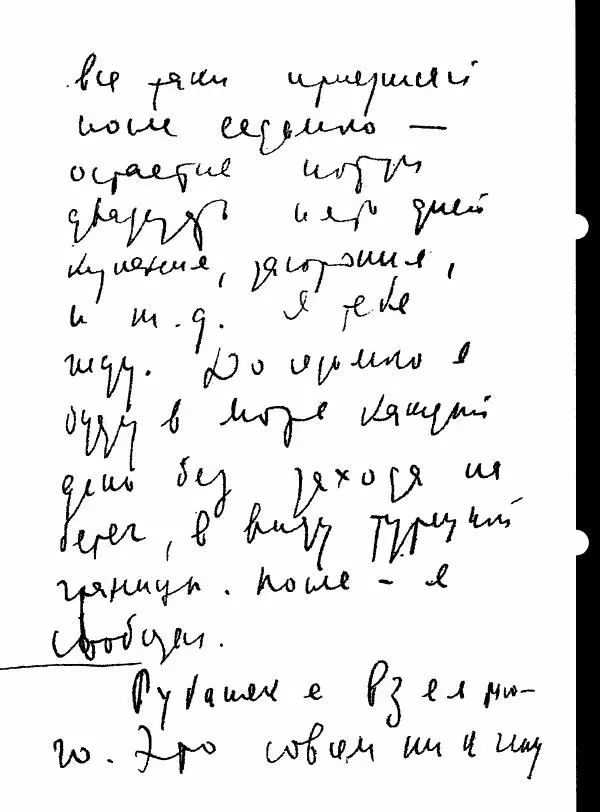 все таки приезжай
после седьмого —
остается потом
двадцать пять дней
купания, загорания,
и т.д. Я тебя
жду. До седьмого я
буду в море каждый
день без захода на
берег, в виду турецкой
границы. После – я
свободен.
Рубашек я взял мно-
го. Это совсем ни к чему